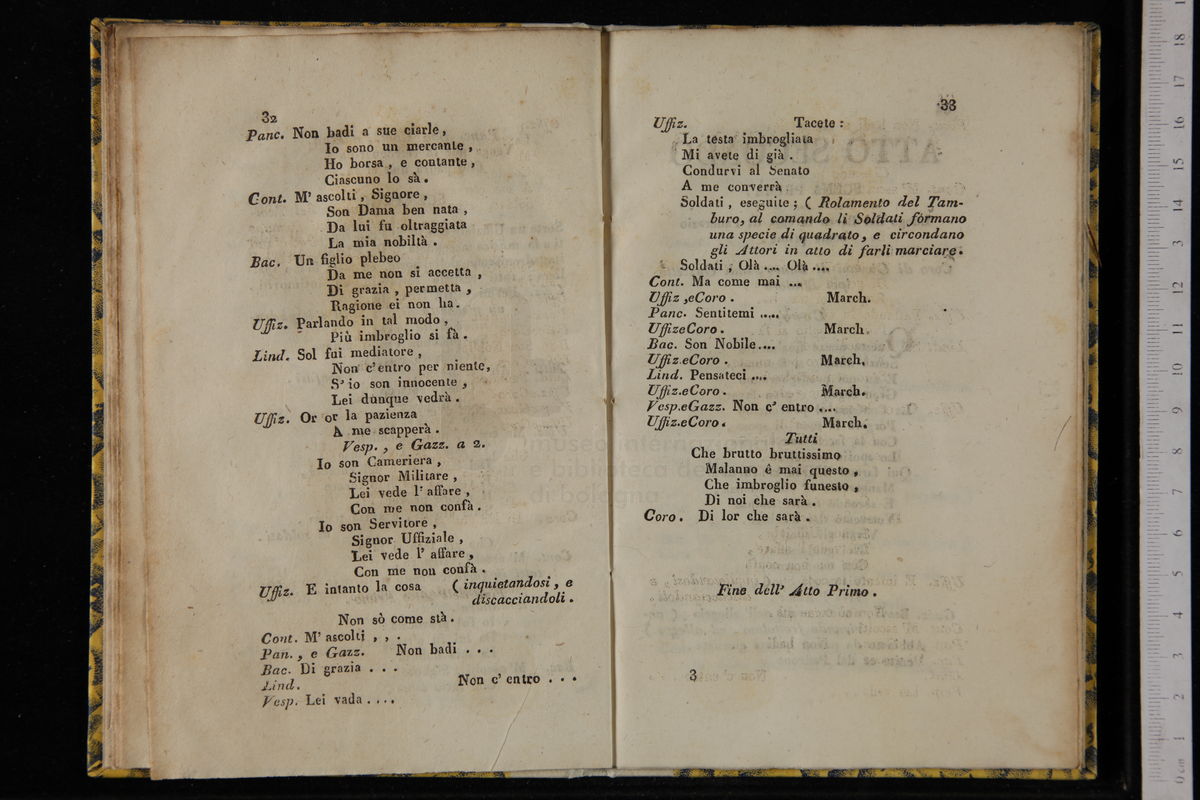 32
Panc. Non badi a sue ciarle,
Io sono un mercante,
Ho borsa, e contante,
Ciascuno lo sà.
Cont. M' ascolti, Signore,
Son Dama ben nata,
Da lui fu oltraggiata
La mia nobiltà.
Bac. Un figlio plebeo
Da me non si accetta,
Di grazia, permetta,
Ragione ei non ha.
Uffiz. Parlando in tal modo,
Più imbroglio si fà.
Lind. Sol fui mediatore,
Non c'entro per niente,
S' io son innocente,
Lei dunque vedrà.
Uffiz. Or or la pazienza
A me scapperà.
Vesp., e Gazz. a 2.
Io son Cameriera,
Signor Militare,
Lei vede l' affare,
Con me non confà.
Io son Servitore,
Signor Uffiziale,
Lei vede l' affare,
Con me non confà.
Uffiz. E intanto la cosa ( inquietandosi, e
discacciandoli.
Non sò come stà.
Cont. M' ascolti , , .
Pan., e Gazz. Non badi . . .
Bac. Di grazia . . .
Lind. Non c' entro . . .
Vesp. Lei vada . . . .
33
Uffiz. Tacete :
La testa imbrogliata
Mi avete di già.
Condurvi al Senato
A me converrà
Soldati, eseguite; ( Rolamento del Tam-
buro, al comando li Soldati formano
una specie di quadrato, e circondano
gli Attori in atto di farli marciare.
Soldati, Olà .... Olà ....
Cont. Ma come mai ...
Uffiz ,eCoro. March.
Panc. Sentitemi .....
UffizeCoro. March.
Bac. Son Nobile....
Uffiz.eCoro. March.
Lind. Pensateci ....
Uffiz.eCoro. March.
Vesp.eGazz. Non c' entro ....
Uffiz.eCoro. March.
Tutti
Che brutto bruttissimo
Malanno é mai questo,
Che imbroglio funesto,
Di noi che sarà.
Coro. Di lor che sarà.
Fine dell' Atto Primo.
3